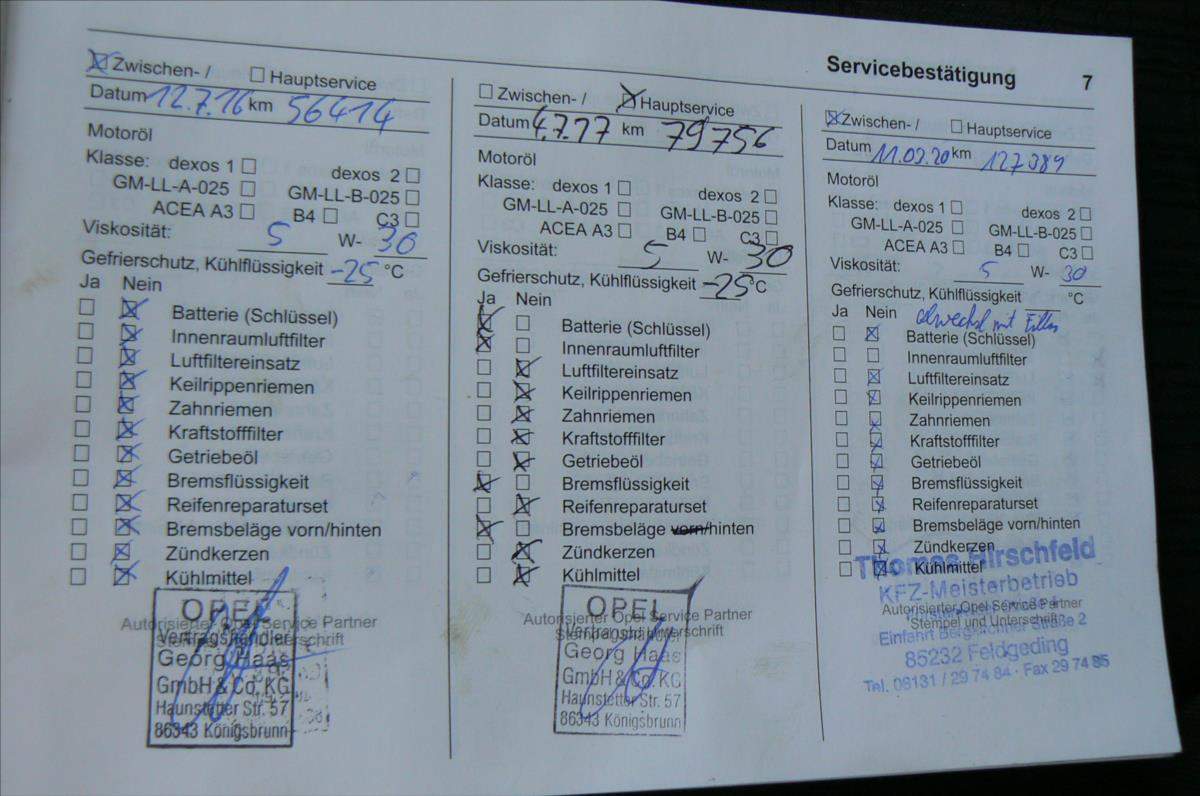 Servicebestätigung 7
Zwischen- / Hauptservice
Datum 12.7.16 km 56414
Motoröl
Klasse: dexos 1 dexos 2
GM-LL-A-025 GM-LL-B-025
ACEA A3 B4 C3
Viskosität: 5 W- 30
Gefrierschutz, Kühlflüssigkeit -25 °C
Ja Nein
Batterie (Schlüssel)
Innenraumluftfilter
Luftfiltereinsatz
Keilrippenriemen
Zahnriemen
Kraftstofffilter
Getriebeöl
Bremsflüssigkeit
Reifenreparaturset
Bremsbeläge vorn/hinten
Zündkerzen
Kühlmittel
Autorisierter Opel Service Partner
Stempel und Unterschrift
OPEL
Vertragshändler
Georg Haas
GmbH & Co. KG
Haunstetter Str. 57
86343 Königsbrunn
Zwischen- / Hauptservice
Datum 4.7.17 km 79756
Motoröl
Klasse: dexos 1 dexos 2
GM-LL-A-025 GM-LL-B-025
ACEA A3 B4 C3
Viskosität: 5 W- 30
Gefrierschutz, Kühlflüssigkeit -25 °C
Ja Nein
Batterie (Schlüssel)
Innenraumluftfilter
Luftfiltereinsatz
Keilrippenriemen
Zahnriemen
Kraftstofffilter
Getriebeöl
Bremsflüssigkeit
Reifenreparaturset
Bremsbeläge vorn/hinten
Zündkerzen
Kühlmittel
Autorisierter Opel Service Partner
Stempel und Unterschrift
OPEL
Vertragshändler
Georg Haas
GmbH & Co. KG
Haunstetter Str. 57
86343 Königsbrunn
Zwischen- / Hauptservice
Datum 11.02.20 km 127384
Motoröl
Klasse: dexos 1 dexos 2
GM-LL-A-025 GM-LL-B-025
ACEA A3 B4 C3
Viskosität: 5 W- 30
Gefrierschutz, Kühlflüssigkeit °C
Ja Nein mit
Batterie (Schlüssel)
Innenraumluftfilter
Luftfiltereinsatz
Keilrippenriemen
Zahnriemen
Kraftstofffilter
Getriebeöl
Bremsflüssigkeit
Reifenreparaturset
Bremsbeläge vorn/hinten
Zündkerzen
Kühlmittel
Autorisierter Opel Service Partner
Stempel und Unterschrift
Thomas Hirschfeld
KFZ-Meisterbetrieb
Einfahrt Bergkirchner Straße 2
85232 Feldgeding
Tel. 08131 / 29 74 84 · Fax 29 74 85